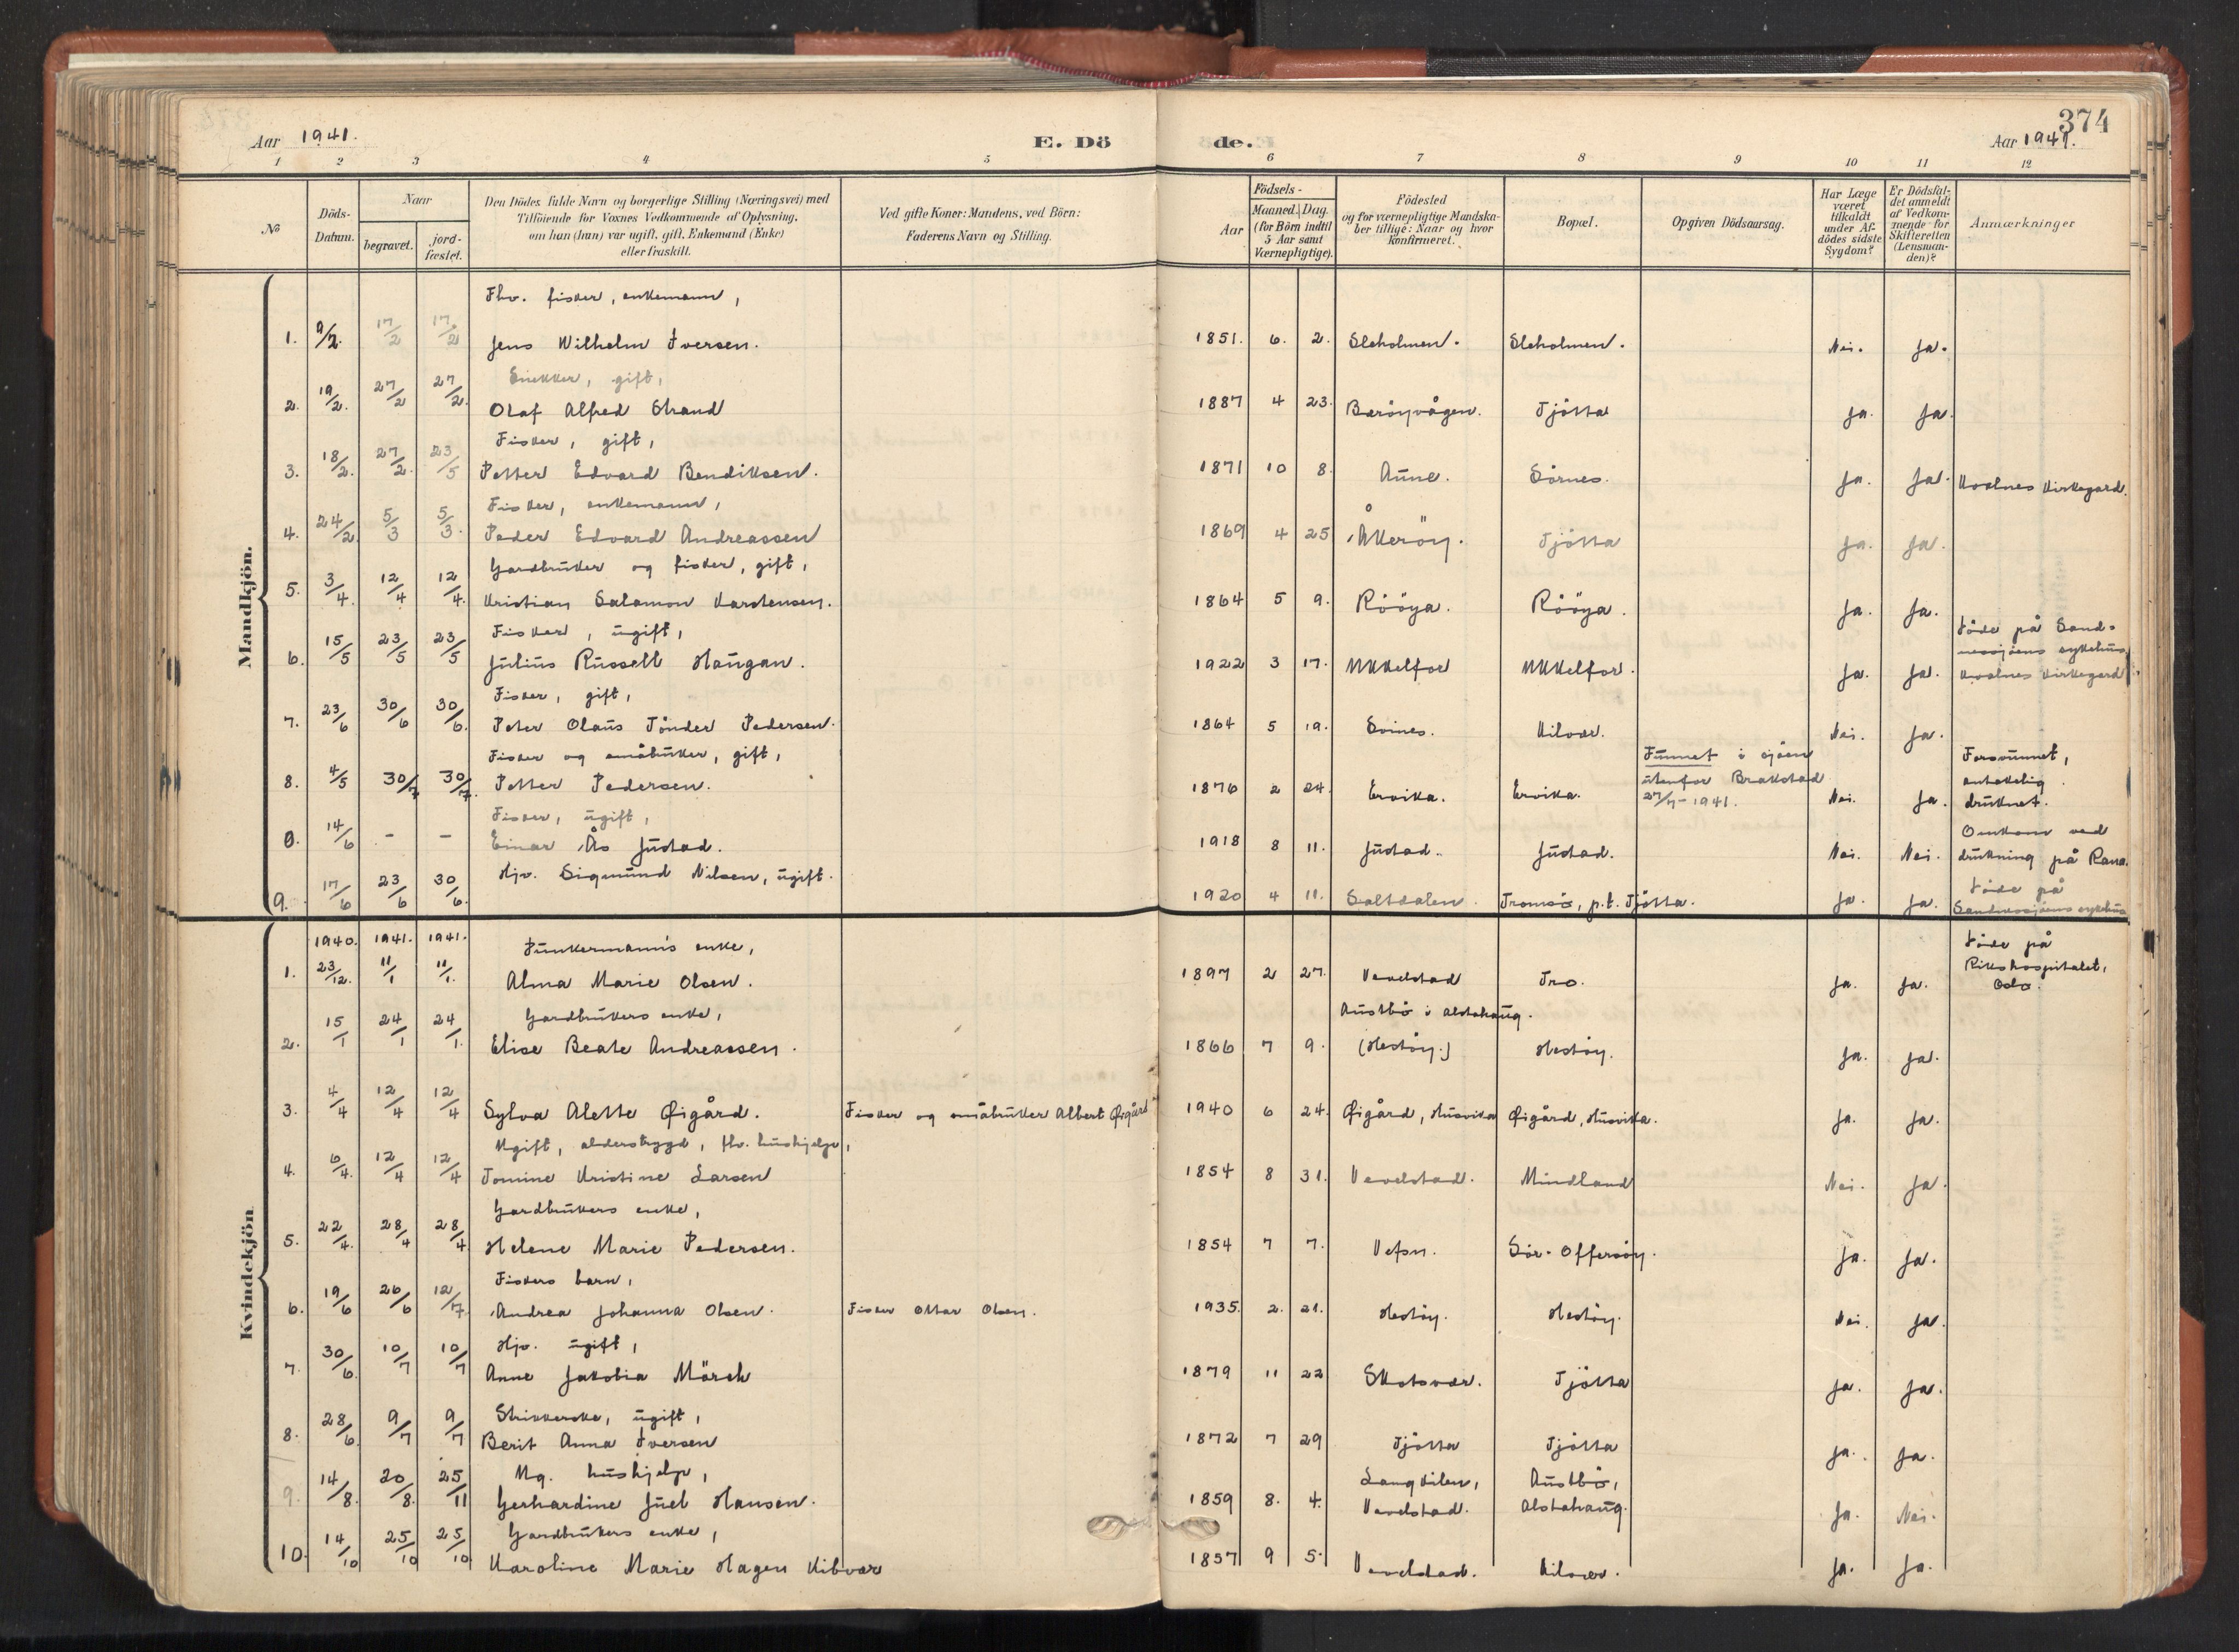 Aar 1941.
E. Dö
de.
374
Aar 1941.
1 2 3 4 5 6 7 8 9 10 11 12
No
Döds-
Datum.
Naar
begravet.
jord-
fæstet.
Den Dödes fulde Navn og borgerlige Stilling (Næringsvei) med
Tilföiende for Voxnes Vedkommende af Oplysning,
om han (hun) var ugift, gift, Enkemand (Enke)
eller fraskilt.
Ved gifte Koner: Mandens, ved Börn:
Faderens Navn og Stilling.
Födsels-
Aar
Maaned. Dag.
(for Börn indtil
5 Aar samt
Værnepligtige).
Födested
og for værnepligtige Mandska-
ber tillige: Naar og hvor
konfirmeret.
Bopæl.
Opgiven Dödsaarsag.
Har Læge
været
tilkaldt
under Af-
dödes sidste
Sygdom?
Er Dödsfal-
det anmeldt
af Vedkom-
mende for
Skifteretten
(Lensman-
den)?
Anmærkninger
Mandkjön.
Fhv. fisker, enkemann,
1. 9/2. 17/2 17/2 Jens Wilhelm Iversen. 1851. 6. 2. Sleholmen. Sleholmen. Nei. Ja.
Snekker, gift,
2. 19/2. 27/2 27/2. Olaf Alfred Strand 1887 4 23. Bæröyvågen. Tjötta Ja. Ja.
Fisker, gift,
3. 18/2. 27/2. 23/5 Petter Edvard Bendiksen. 1871 10 8. Aune. Sörnes. Ja. Ja. Kvalnes kirkegard.
Fisker, enkemann,
4. 24/2 5/3 5/3. Peder Edvard Andreassen 1869 4 25 Åkeröy. Tjötta Ja. Ja.
Gardbruker og fisker, gift,
5. 3/4. 12/4 12/4. Kristian Salamon Karstensen. 1864 5 9. Rööya. Rööya. Ja. Ja.
Fisker, ugift,
6. 15/5 23/5 23/5 Julius Russell Haugan. 1922 3 17. Ukkelfor Ukkelfor. Ja. Ja.
Döde på Sand-
nessjöens sykehus
Kvalnes kirkegard
Fisker, gift,
7. 23/6 30/6 30/6. Peter Olaus Tönder Pedersen. 1864 5 19. Svines. Kilvær. Nei. Ja.
Fisker og småbruker, gift,
8. 4/5 30/7 30/7. Petter Pedersen. 1876 2 24. Ervika. Ervika.
Funnet i sjöen
utenfor Brakstad
27/7-1941.
Nei. Ja.
Forsvunnet,
antakelig
druknet.
Fisker, ugift,
0. 14/6 - - Einar Ås Justad. 1918 8 11. Justad. Justad. Nei. Nei.
Omkom ved
drukning på Rana.
9. 17/6 23/6 30/6. Hjv. Sigmund Nilsen, ugift. 1920 4 11. Saltdalen. Tromsö, p.t. Tjötta. Ja. Ja.
Döde på
Sandnessjöens sykehus
Kvindekjön
1940. 1941. 1941. Bunkermanns enke,
1. 23/12. 11/1 11/1. Alma Marie Olsen. 1897 2 27. Vevelstad Tro. Ja. Ja.
Döde på
Rikshospitalet,
Oslo.
Gardbrukers enke, Austbö i Alstahaug.
2. 15/1 24/1 24/1. Elise Beate Andreassen. 1866 7 9. (Hestöy.) Hestöy. Ja. Ja.
3. 4/4 12/4 12/4 Sylva Alette Øigård. Fisker og småbruker Albert Øigård 1940 6 24. Øigård, Husvika Øigård, Husvika. Ja. Ja.
Ugift, alderstrygd, fhv. hushjelp,
4. 6/4. 12/4 12/4 Tomine Kristine Larsen 1854 8 31. Vevelstad. Mindland Nei. Ja.
Gardbrukers enke,
5. 22/4. 28/4 28/4 Helene Marie Pedersen. 1854 7 7. Vefsn. Sör-Offersöy. Ja. Ja.
Fiskers barn,
6. 19/6 26/6 12/7. Andrea Johanna Olsen. Fisker Ottar Olsen. 1935. 2. 21. Hestöy. Hestöy. Nei. Ja.
Hjv. ugift,
7. 30/6. 10/7 10/7 Anne Jakobia Mörch 1879 11 22 Skotsvær. Tjötta Ja. Ja.
Strikkerske, ugift,
8. 28/6. 9/7 9/7 Berit Anna Iversen 1872 7 29 Tjötta Tjötta Ja. Ja.
Ug. hushjelp, Langkilen, Austbö,
9. 14/8. 20/8. 25/11 Gerhardine Juel Hansen. 1859 8. 4. Vevelstad. Alstahaug. Ja. Nei.
Gardbrukers enke,
10. 14/10 25/10 25/10 Karoline Marie Hagen Kilvær 1857 9 5. Vevelstad. Kilvær. Ja. Ja.